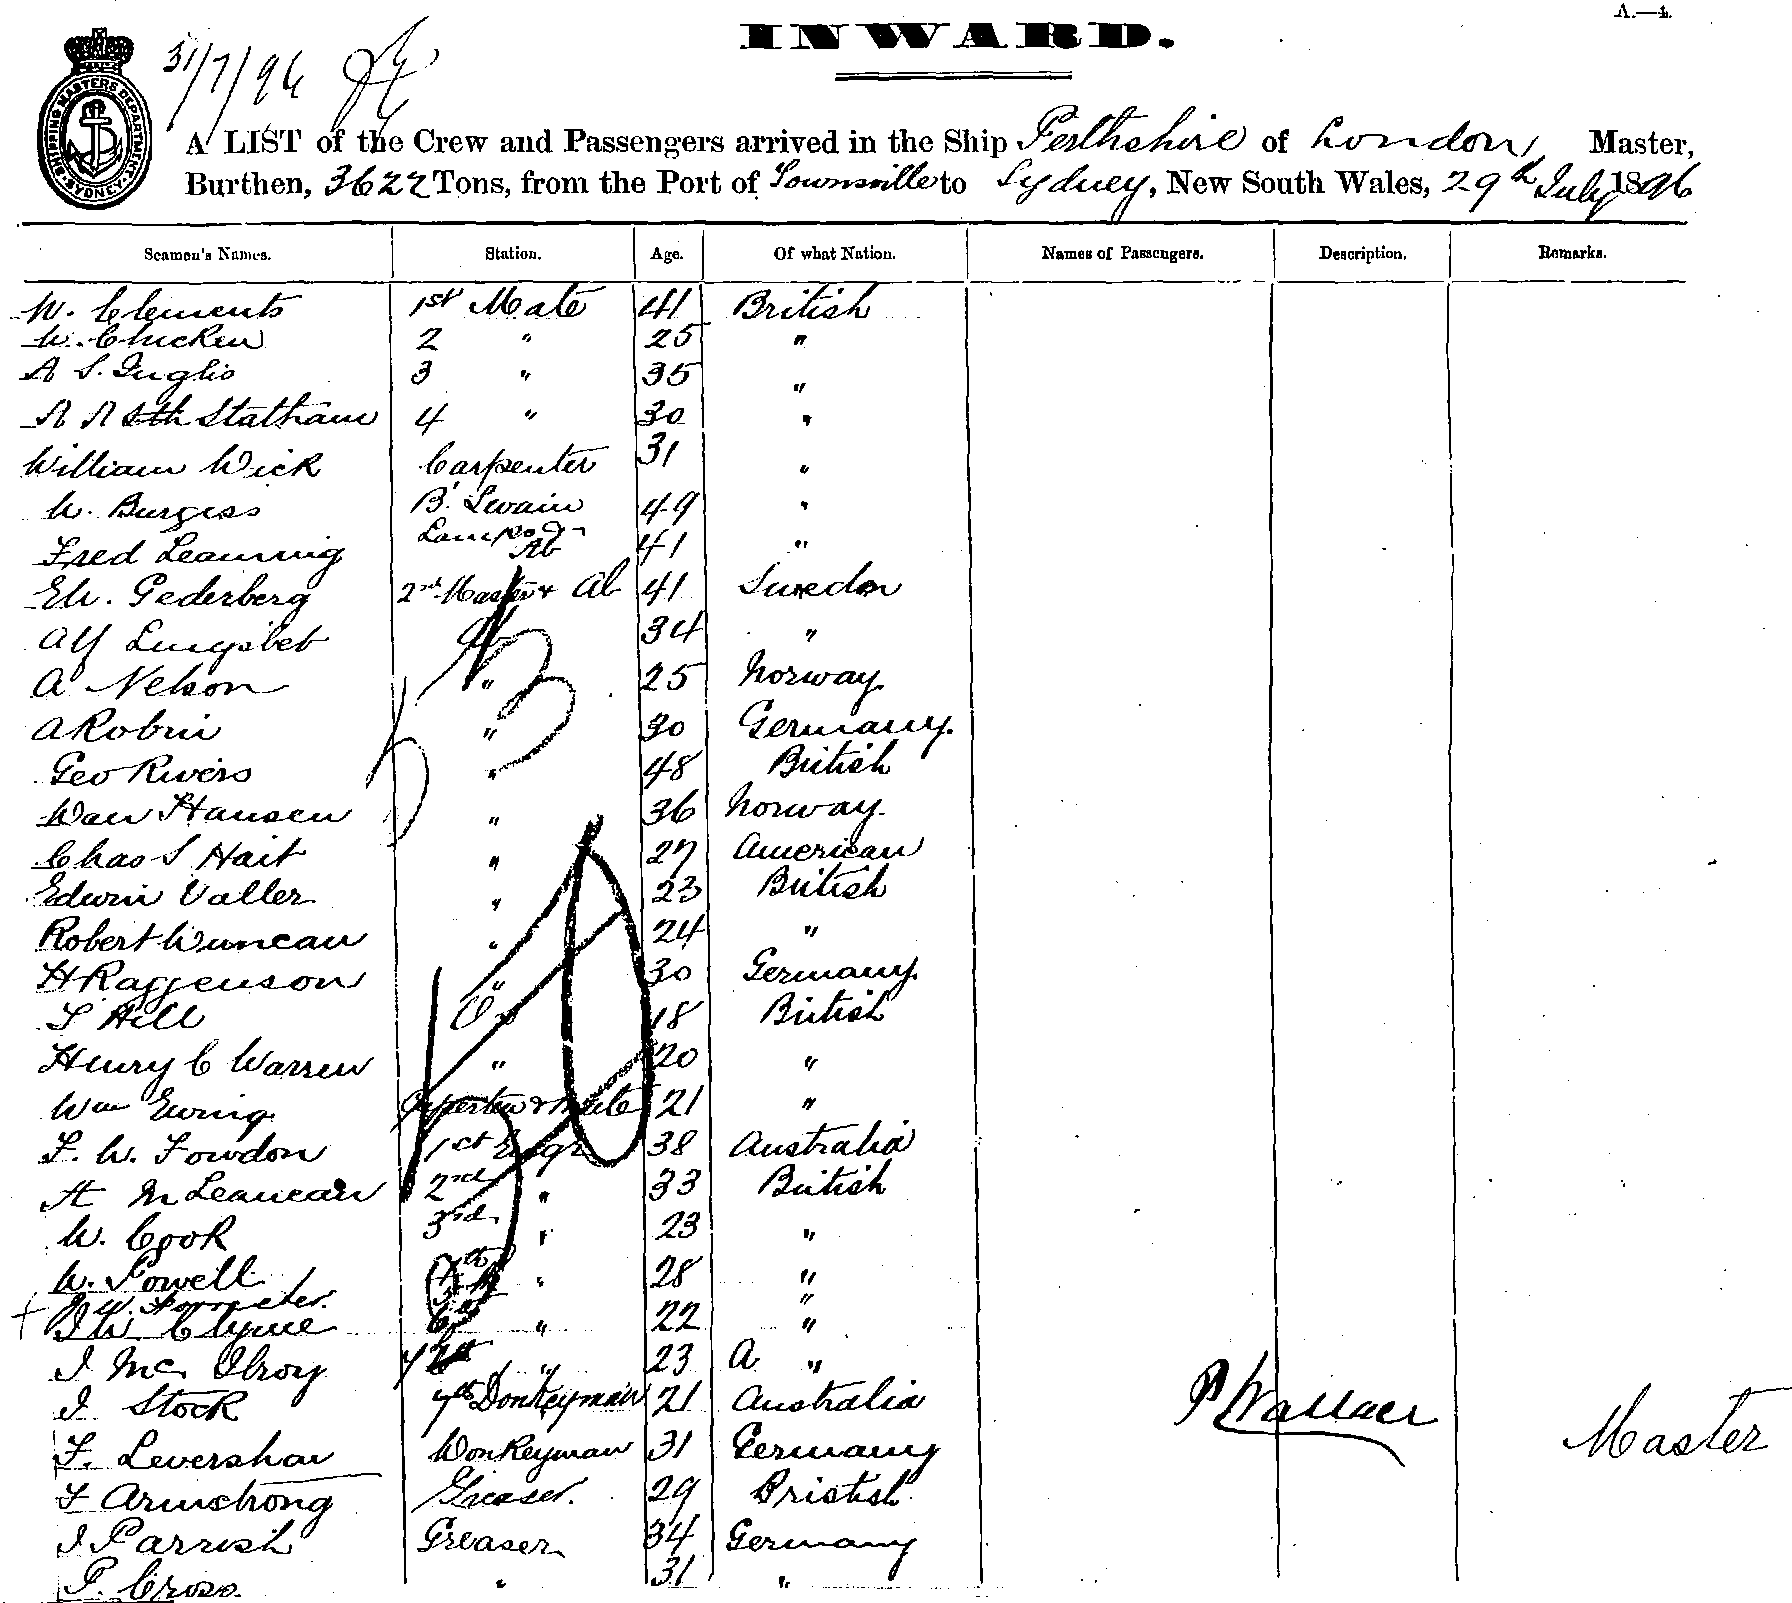 A.—4.
INWARD.
SHIPPING MASTERS DEPARTMENT SYDNEY
31/7/96
A LIST of the Crew and Passengers arrived in the Ship Perthshire of London, Master,
Burthen, 3622 Tons, from the Port of Townsville to Sydney, New South Wales, 29th July 1896
Seamen's Names. Station. Age. Of what Nation. Names of Passengers. Description. Remarks.
W. Clements 1st Mate 41 British
W. Chicken 2 " 25 "
A S. Inglis 3 " 35 "
A A Sth Statham 4 " 30 "
William Wick Carpenter 31 "
W. Burgess B. Swain 49 "
Fred Leaming Ab 41 "
Eh. Cederberg 2nd Master & Ab 41 Sweden
Alf 34 "
A Nelson " 25 Norway
A Robin " 30 Germany.
Geo Rivers " 48 British
Hansen " 36 Norway.
Chas S Hait " 27 American
Edwin Valler " 23 British
Robert Duncan " 24 "
H Raggenson " 30 Germany.
S Hill Os 18 British
Henry C Warren " 20 "
Wm Ewing 21 "
F. W. Fowdon 1st Engr 38 Australia
A McLeancan 2nd " 33 British
W. Cook 3rd " 23 "
W. Powell 4th " 28 "
"
J W Clyme " 22 "
J Mc Ilroy " 23 A "
J Stock 7th Donkeyman 21 Australia
F. Levershau Donkeyman 31 Germany
F Armstrong Greaser. 29 Bristish
J Parrish Greaser 34 Germany
P. Cross " 31 "
P Wallace Master